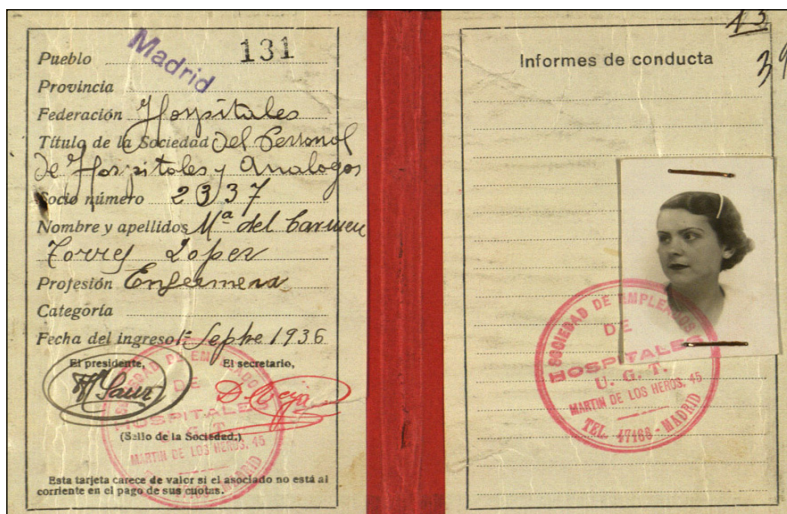 Pueblo Madrid 131
Provincia
Federación Hospitales
Título de la Sociedad Del Personal
de Hospitales y Analogos
Socio número 2337
Nombre y apellidos Mª del Carmen
Torres Lopez
Profesión Enfermera
Categoría
Fecha del ingreso 1º Sepbre 1936
El presidente, El secretario,
(Sello de la Sociedad.)
SOCIEDAD DE EMPLEADOS
DE
HOSPITALES
U. G. T.
MARTIN DE LOS HEROS, 45
MADRID
Esta tarjeta carece de valor si el asociado no está al
corriente en el pago de sus cuotas.
Informes de conducta
SOCIEDAD DE EMPLEADOS
DE
HOSPITALES
U. G. T.
MARTIN DE LOS HEROS, 45
TEL. 47166 - MADRID